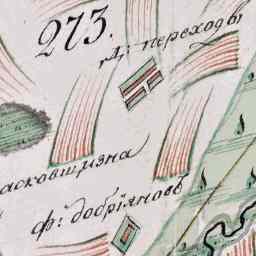 273.
Д: переходы
асковщизна
ф: добріяновъ